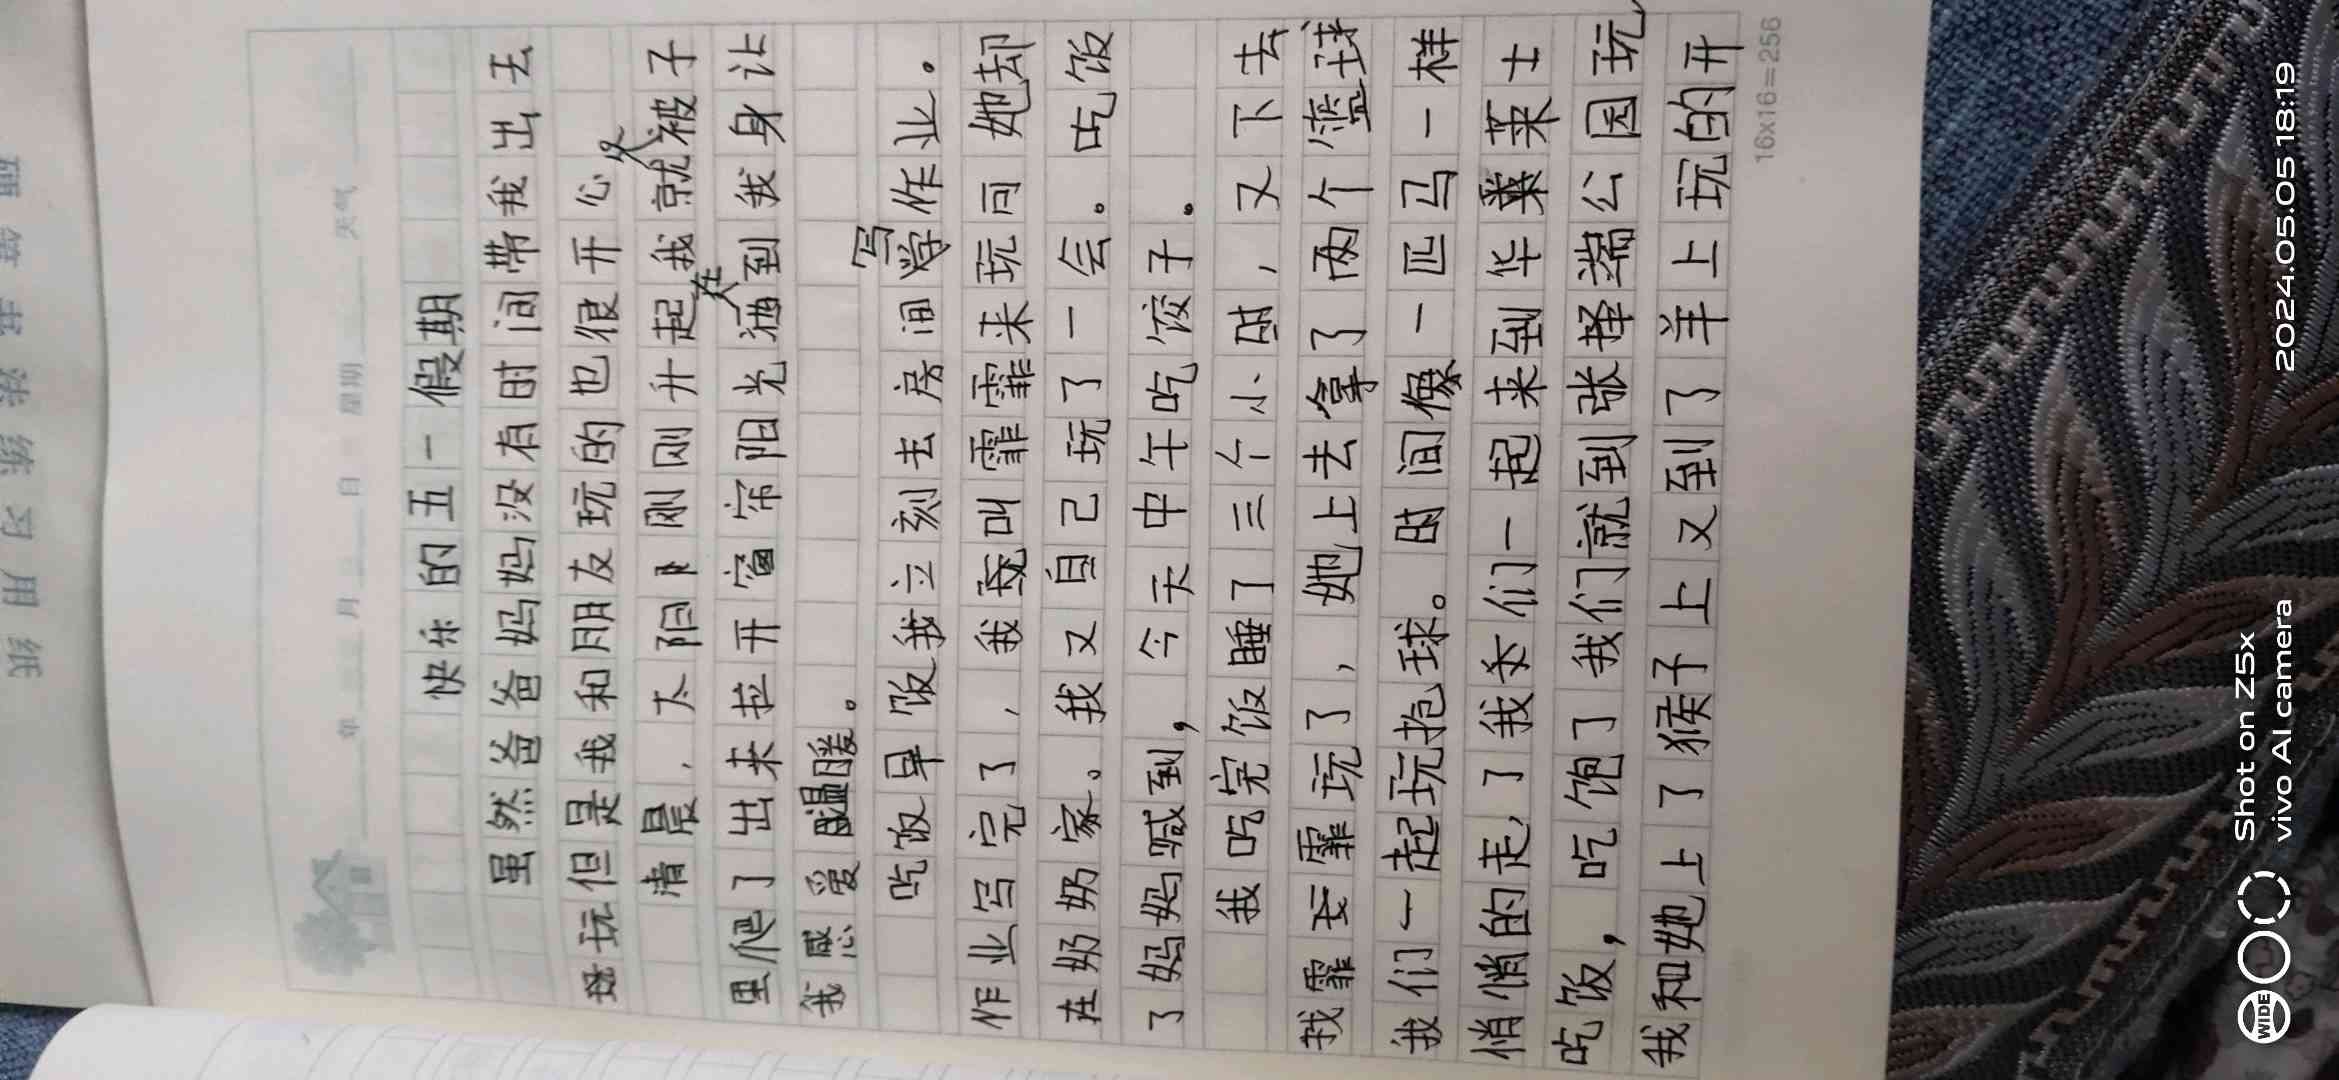 硬笔书法练习用纸
年 月 日 星期 天气
快乐的五一假期
虽然爸爸妈妈没有时间带我出去
玩但是我和朋友玩的也很开心
清晨,太阳刚刚升起我就从被子
里爬了出来拉开窗帘阳光洒在到我身让
我感爱温暖。
吃饭早饭我立刻去房间写作业。
作业写完了,我叫霏霏来玩问她却
在奶奶家。我又自己玩了一会。吃饭
了妈妈喊到,今天中午吃饺子。
我吃完饭睡了三个小时,又下去
找霏玩了,她上去拿了两个篮球
我们一起玩抱球。时间像一匹马一样
悄悄的走,了我们一起来到华莱士
吃饭,吃饱了我们就到张择端公园玩,
我和她上了猴子上又到了羊上玩的开
16x16=256
Shot on Z5x
vivo AI camera
2024.05.05 18:19
WIDE